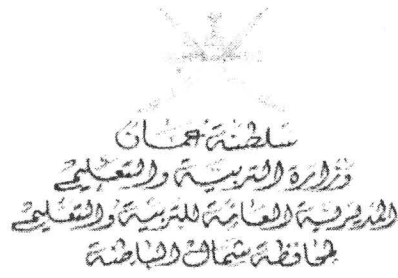 سلطنة عمان
وزارة التربية والتعليم
المديرية العامة للتربية والتعليم
لمحافظة شمال الباطنة